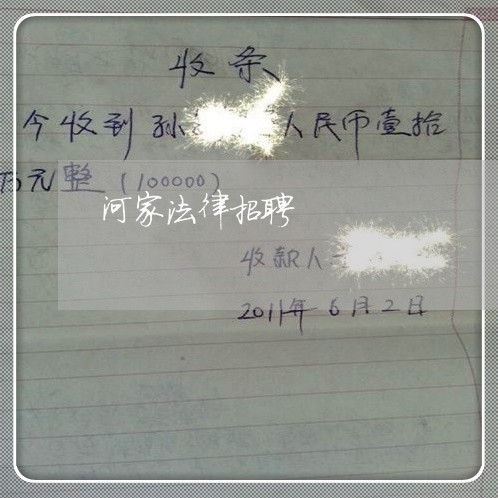 收条
今收到孙 人民币壹拾
万元整（100000）
河家法律招聘
收款人
2011年6月2日